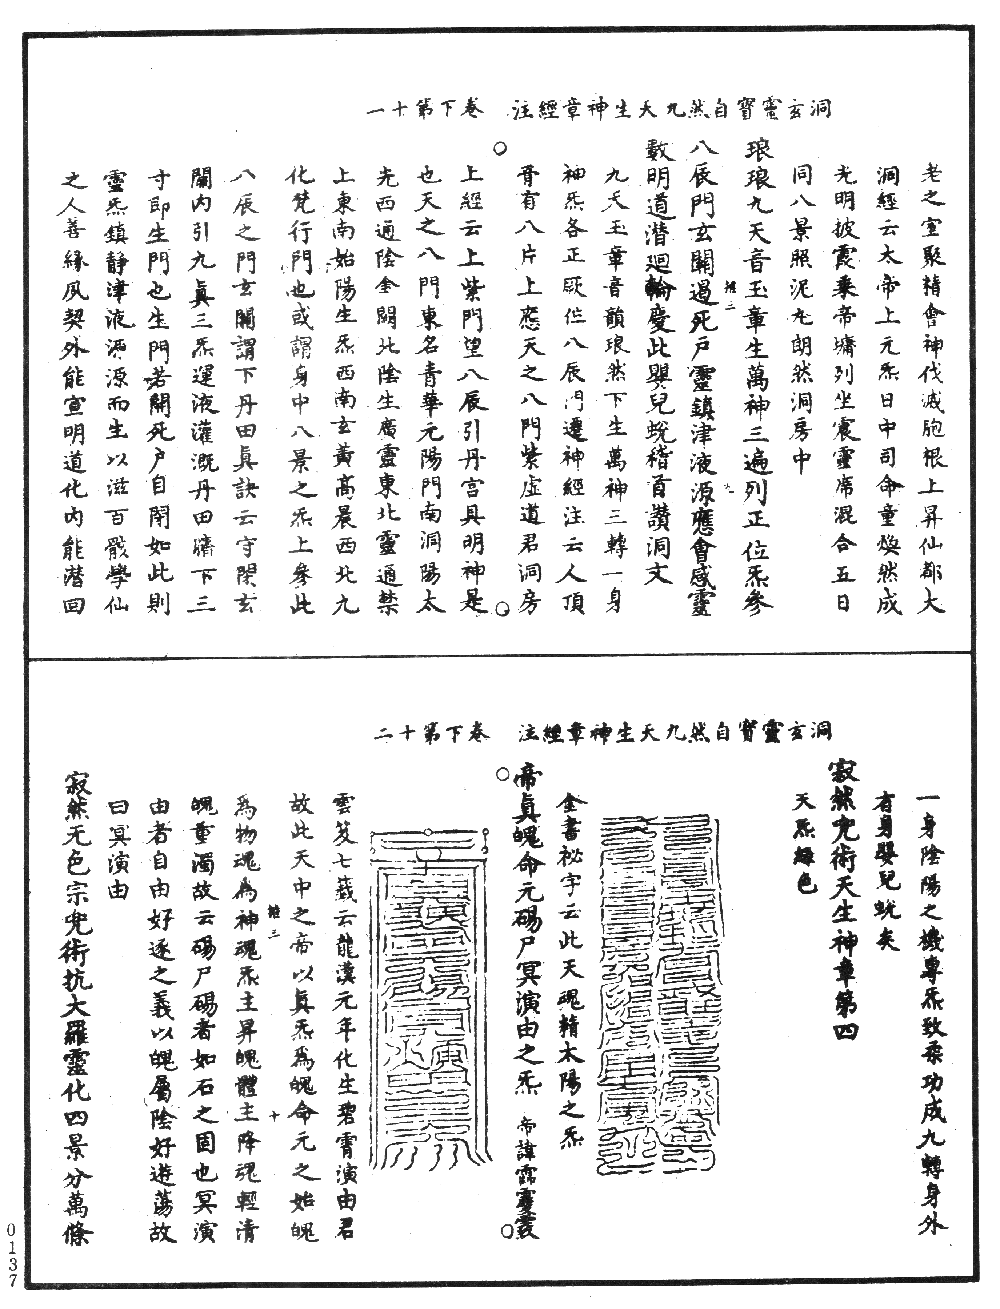 洞玄靈寶自然九天生神章經注　卷下第十一
老之室聚精會神伐滅胞根上昇仙都大
洞經云太帝上元炁日中司命童煥然成
光明披霞乘帝墉列坐宸靈席混合五日
同八景照泥丸朗然洞房中
琅琅九天音玉章生萬神三遍列正位炁參
八辰門玄關遏死戶靈鎮津液源應會感靈
數明道潛迴輪慶此嬰兒蛻稽首讚洞文
九天玉章音韻琅然下生萬神三轉一身
神炁各正厥位八辰門蘧神經注云人頂
骨有八片上應天之八門紫虛道君洞房
上經云上紫門望八辰引丹宮具明神是
也天之八門東名青華元陽門南洞陽太
光西通陰金闕北陰生廣靈東北靈通禁
上東南始陽生炁西南玄黃高晨西北九
化梵行門也或謂身中八景之炁上參此
八辰之門玄關謂下丹田真訣云守閑玄
關內引九真三炁運液灌溉丹田臍下三
寸即生門也生門若開死戶自閉如此則
靈炁鎮靜津液源源而生以滋百骸學仙
之人善緣夙契外能宣明道化內能潛回
洞玄靈寶自然九天生神章經注　卷下第十二
一身陰陽之機專炁致柔功成九轉身外
有身嬰兒蛻矣
寂然兜術天生神章第四
天炁綠色
金書祕字云此天魂精太陽之炁
帝真魄命元碭尸冥演由之炁　帝諱霈
雲笈七籤云龍漢元年化生碧霄演由君
故此天中之帝以真炁為魄命元之始魄
為物魂為神魂炁主昇魄體主降魂輕清
魄重濁故云碭尸碭者如石之固也冥演
由者自由好逐之義以魄屬陰好遊蕩故
曰冥演由
寂然无色宗兜術抗大羅靈化四景分萬條
0137